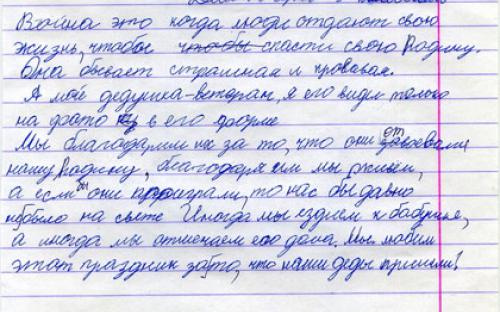 Война это когда люди отдают свою
жизнь, чтобы чтобы спасти свою Родину.
Она бывает страшная и кровавая.
А мой дедушка-ветеран, я его видел только
на фото в его форме
Мы благодарим их за то, что они отвоевали
нашу Родину, благодаря им мы живём,
а если бы они проиграли, то нас бы давно
небыло на свете Иногда мы ездием к бабушке,
а иногда мы отмечаем его дома. Мы любим
этот праздник за то, что наши деды принесли!